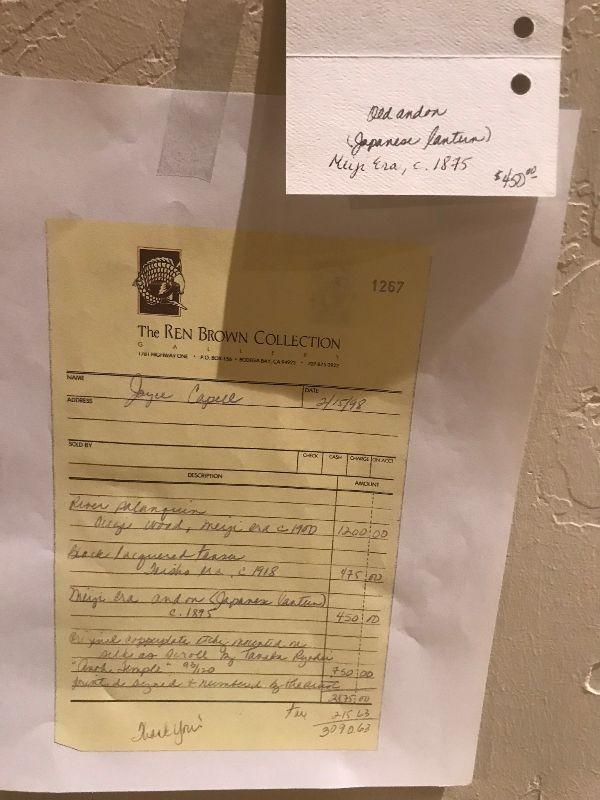 Old andon
(Japanese lantern)
Meiji Era, c. 1875
$450.00
1267
The REN BROWN COLLECTION
GALLERY
1781 HIGHWAY ONE • P.O. BOX 156 • BODEGA BAY, CA 94923 •
NAME Joyce Capell DATE 2/15/98
ADDRESS
SOLD BY CHECK CASH CHARGE ON ACCT
DESCRIPTION AMOUNT
River palanquin
wood, Meiji era c 1900 1200 00
Black lacquered tansu
Taisho era, c 1918 475 00
Meiji Era andon (Japanese lantern)
c. 1895 450 00
Original copperplate etchg mounted on
silk as scroll by Tanaka Ryohei
Temple" 93/120 750 00
printed signed & numbered by the artist
2875.00
Tax 215.63
3090.63
Thank You!